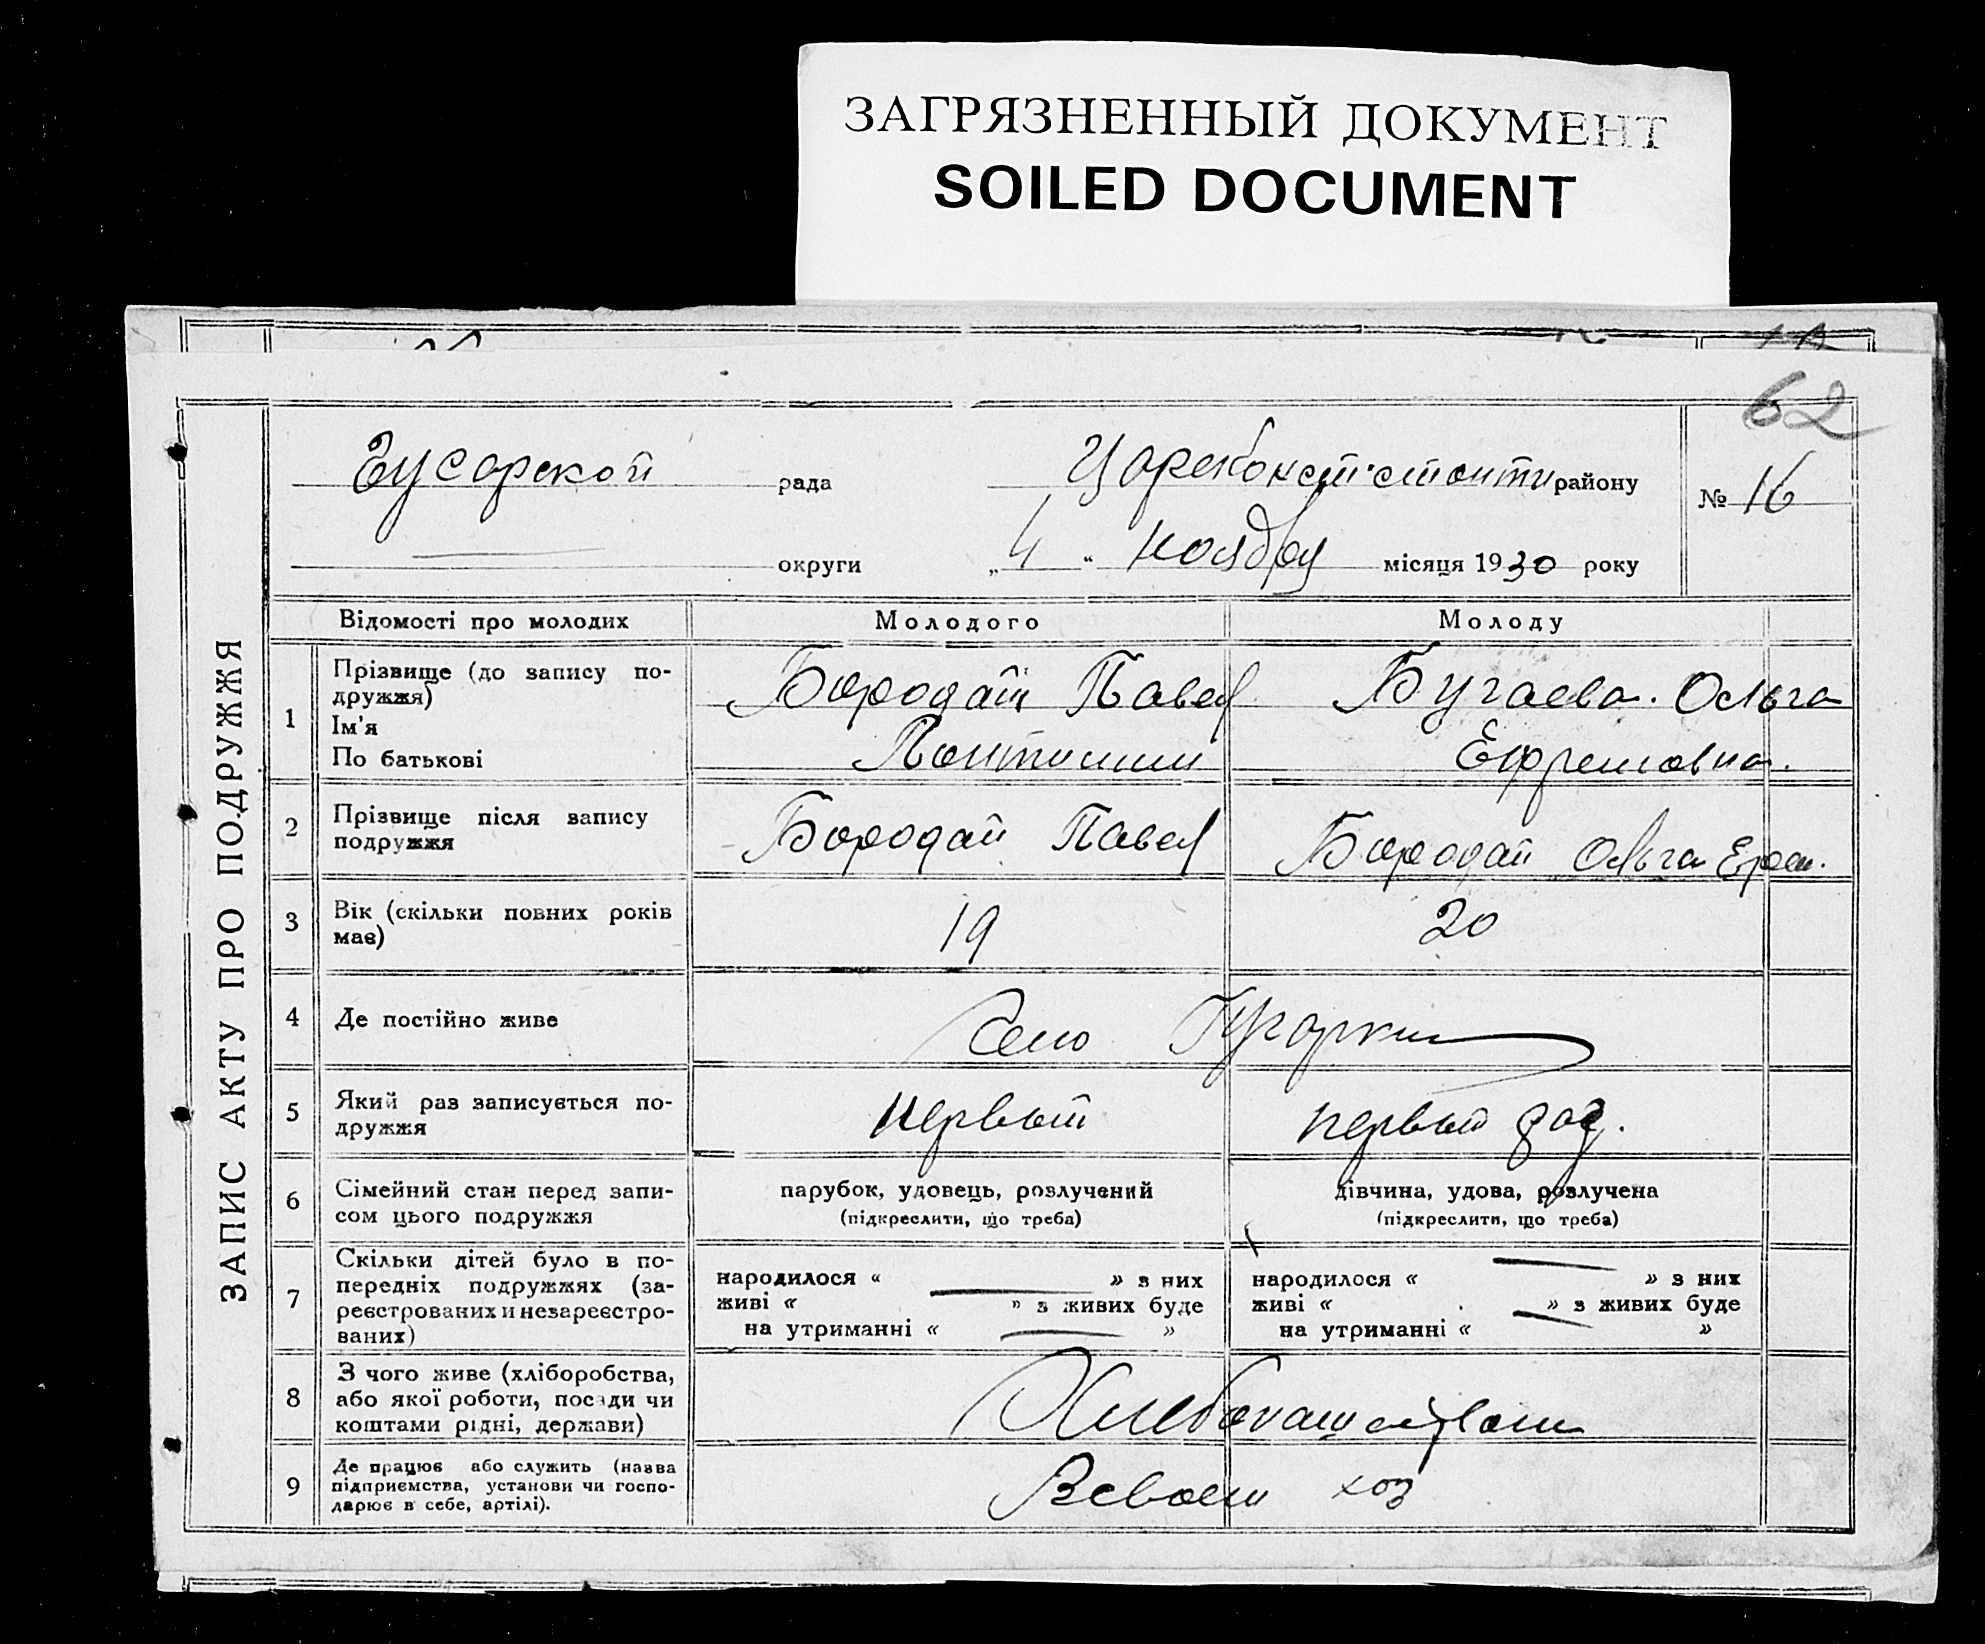 ЗАГРЯЗНЕННЫЙ ДОКУМЕНТ
SOILED DOCUMENT
62
рада
району
№ 16
округи „ 4 “ ноября місяця 1930 року
ЗАПИС АКТУ ПРО ПОДРУЖЖЯ
Відомості про молодих Молодого Молоду
1 Прізвище (до запису по-
дружжя)
Ім'я
По батькові
Бородай Павел
Бугаева Ольга
Ефремовна
2 Прізвище після запису
подружжя
Бородай Павел
Бородай Ольга Ефрем.
3 Вік (скільки повних років
має)
19 20
4 Де постійно живе
Село
5 Який раз записується по-
дружжя
первый первый раз.
6 Сімейний стан перед запи-
сом цього подружжя
парубок, удовець, розлучений
(підкреслити, що треба)
дівчина, удова, розлучена
(підкреслити, що треба)
7 Скільки дітей було в по-
передніх подружжях (за-
реєстрованих и незареєстро-
ваних)
народилося « » з них
живі « » з живих буде
на утриманні « »
народилося « » з них
живі « » з живих буде
на утриманні « »
8 З чого живе (хліборобства,
або якої роботи, посади чи
коштами рідні, держави)
Хлебопашеством
9 Де працює або служить (назва
підприємства, установи чи госпо-
дарює в себе, артілі).
В своем хоз